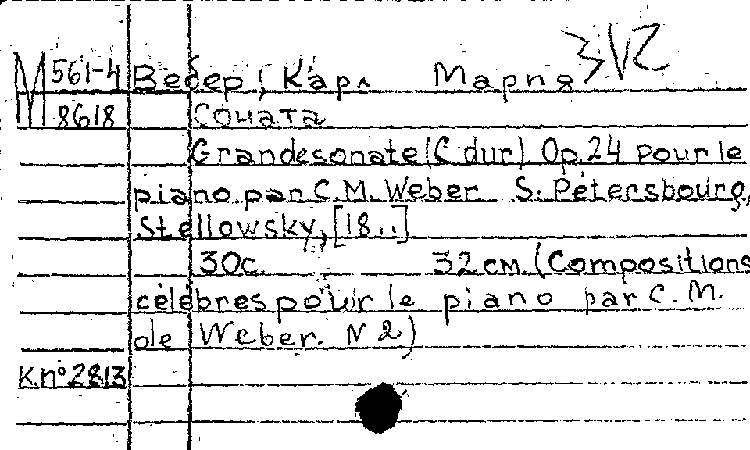 М 561-4 Вебер, Карл Мария
8618 Соната
Grande sonate (C dur) Op. 24 pour le
piano par C. M. Weber S. Pétersbourg,
Stellowsky, [18..]
30с. 32 см. (Compositions
célèbres pour le piano par C. M.
de Weber. N 2)
K. n° 2813